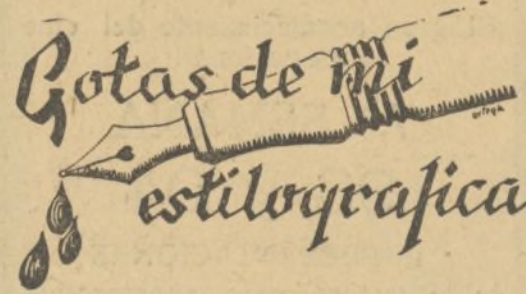 Gotas de mi
estilografica